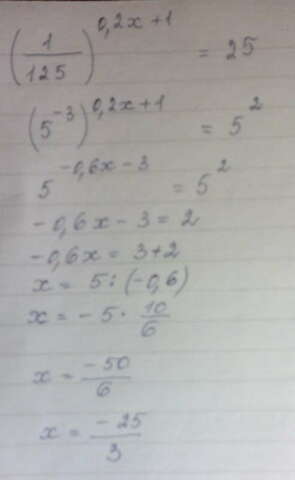 (1/125)^(0,2x+1) = 25
(5^(-3))^(0,2x+1) = 5^2
5^(-0,6x-3) = 5^2
-0,6x-3=2
-0,6x=3+2
x = 5:(-0,6)
x = -5·10/6
x = -50/6
x = -25/3